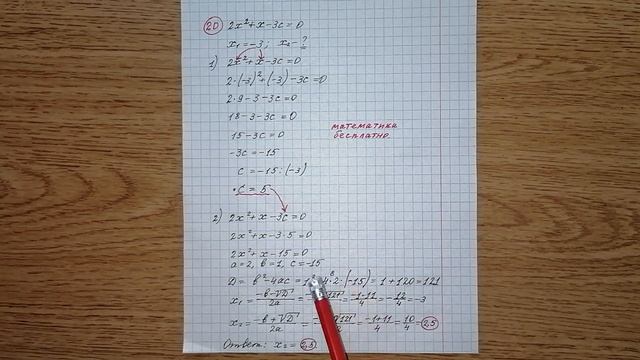 20 2x²+x-3c=0
x₁=-3; x₂-?
1) 2x²+x-3c=0
2·(-3)²+(-3)-3c=0
2·9-3-3c=0
18-3-3c=0
15-3c=0
математика
бесплатно
-3c=-15
c=-15:(-3)
c=5
2) 2x²+x-3c=0
2x²+x-3·5=0
2x²+x-15=0
a=2, b=1, c=-15
D=b²-4ac=1²-4·2·(-15)=1+120=121
x₁=(-b-√D)/2a= =(-1-11)/4=-12/4=-3
x₂=(-b+√D)/2a= =(-1+11)/4=10/4=2,5
Ответ: x₂=2,5